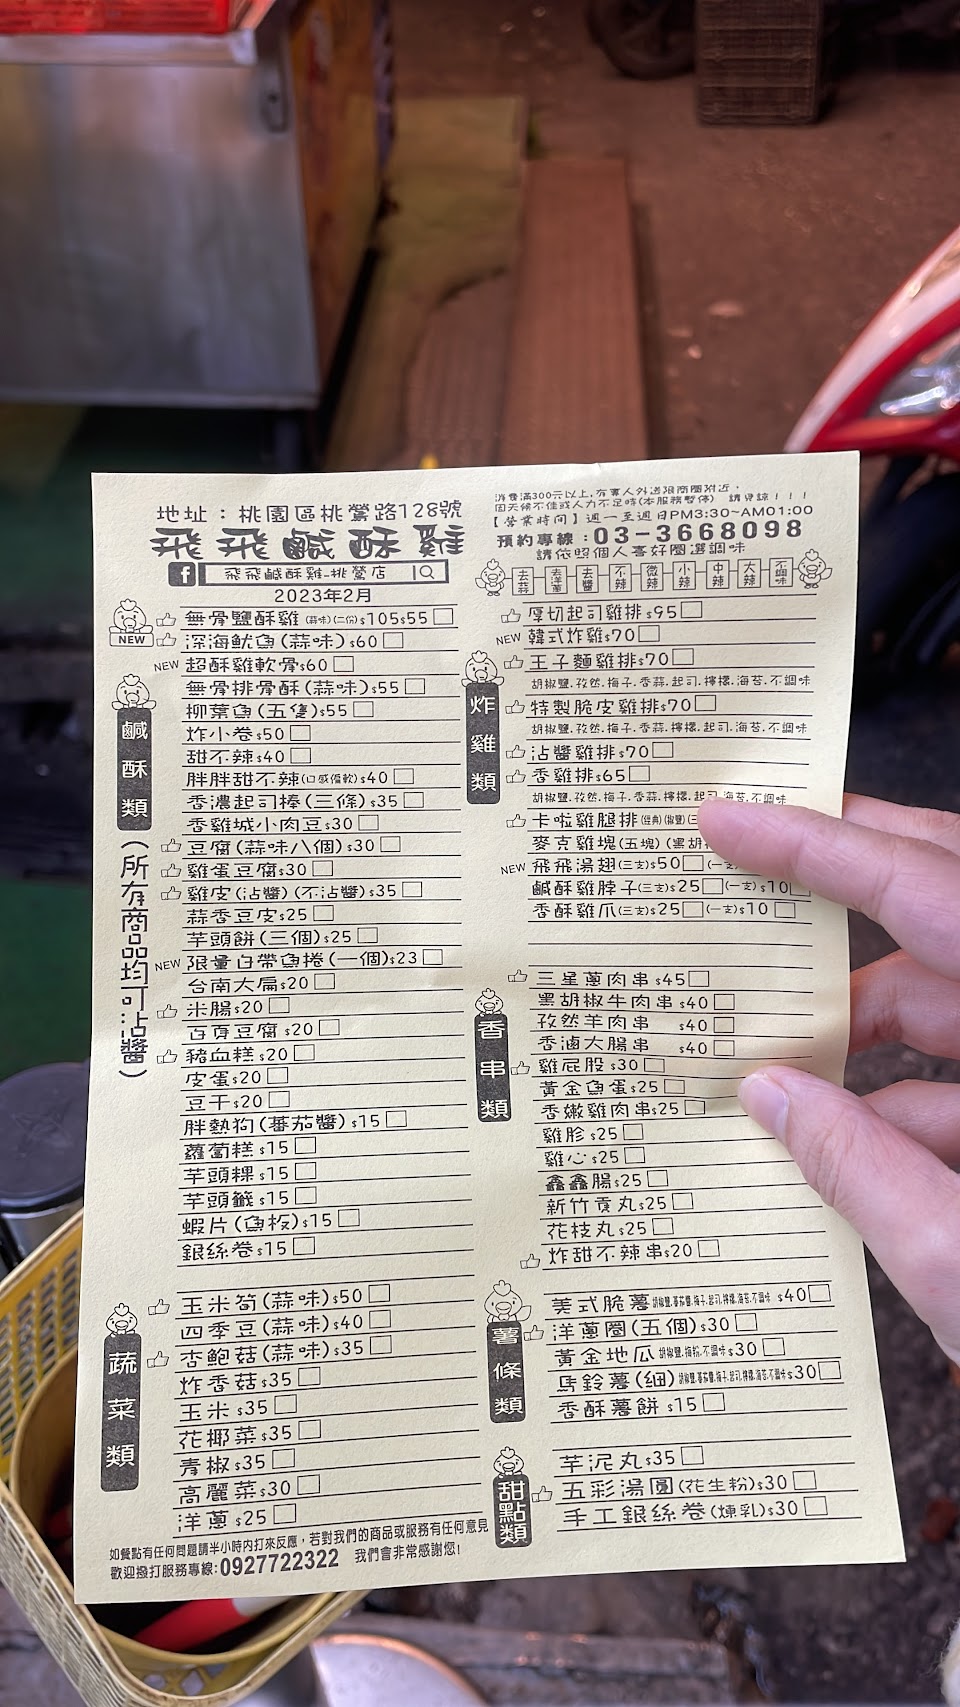 地址：桃園區桃鶯路128號
飛飛鹹酥雞
飛飛鹹酥雞-桃鶯店
2023年2月
消費滿300元以上,有專人外送限商圈附近,
因天候不佳或人力不足時(本服務暫停) 請見諒!!!
【營業時間】週一至週日PM3:30~AM01:00
預約專線:03-3668098
請依照個人喜好圈選調味
去蒜 去洋蔥 去醬 不辣 微辣 小辣 中辣 大辣 不調味
鹹酥類
(所有商品均可沾醬)
NEW 無骨鹽酥雞(蒜味)(二份)$105$55
深海魷魚(蒜味)$60
NEW 超酥雞軟骨$60
無骨排骨酥(蒜味)$55
柳葉魚(五隻)$55
炸小卷$50
甜不辣$40
胖胖甜不辣(口感偏軟)$40
香濃起司棒(三條)$35
香雞城小肉豆$30
豆腐(蒜味八個)$30
雞蛋豆腐$30
雞皮(沾醬)(不沾醬)$35
蒜香豆皮$25
芋頭餅(三個)$25
NEW 限量白帶魚捲(一個)$23
台南大扁$20
米腸$20
百頁豆腐$20
豬血糕$20
皮蛋$20
豆干$20
胖熱狗(蕃茄醬)$15
蘿蔔糕$15
芋頭粿$15
芋頭籤$15
蝦片(魚板)$15
銀絲卷$15
蔬菜類
玉米筍(蒜味)$50
四季豆(蒜味)$40
杏鮑菇(蒜味)$35
炸香菇$35
玉米$35
花椰菜$35
青椒$35
高麗菜$30
洋蔥$25
炸雞類
厚切起司雞排$95
NEW 韓式炸雞$70
王子麵雞排$70
胡椒鹽.孜然.梅子.香蒜.起司.檸檬.海苔.不調味
特製脆皮雞排$70
胡椒鹽.孜然.梅子.香蒜.檸檬.起司.海苔.不調味
沾醬雞排$70
香雞排$65
胡椒鹽.孜然.梅子.香蒜.檸檬.起司.海苔.不調味
卡啦雞腿排(經典)(椒鹽)
麥克雞塊(五塊)(黑胡
NEW 飛飛湯翅(三支)$50 (一支)
鹹酥雞脖子(三支)$25 (一支)$10
香酥雞爪(三支)$25 (一支)$10
香串類
三星蔥肉串$45
黑胡椒牛肉串$40
孜然羊肉串 $40
香滷大腸串 $40
雞屁股$30
黃金魚蛋$25
香嫩雞肉串$25
雞胗$25
雞心$25
鑫鑫腸$25
新竹貢丸$25
花枝丸$25
炸甜不辣串$20
薯條類
美式脆薯胡椒鹽.蕃茄醬.梅子.起司.檸檬.海苔.不調味 $40
洋蔥圈(五個)$30
黃金地瓜胡椒鹽.梅粉.不調味$30
馬鈴薯(細)胡椒鹽.蕃茄醬.梅子.起司.檸檬.海苔.不調味$30
香酥薯餅$15
甜點類
芋泥丸$35
五彩湯圓(花生粉)$30
手工銀絲卷(煉乳)$30
如餐點有任何問題請半小時內打來反應，若對我們的商品或服務有任何意見
歡迎撥打服務專線:0927722322 我們會非常感謝您!